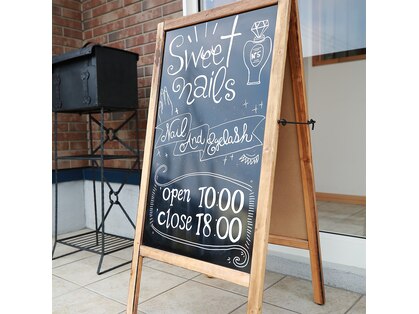 Sweet
nails
Nail And Eyelash
open 10:00
close 18:00